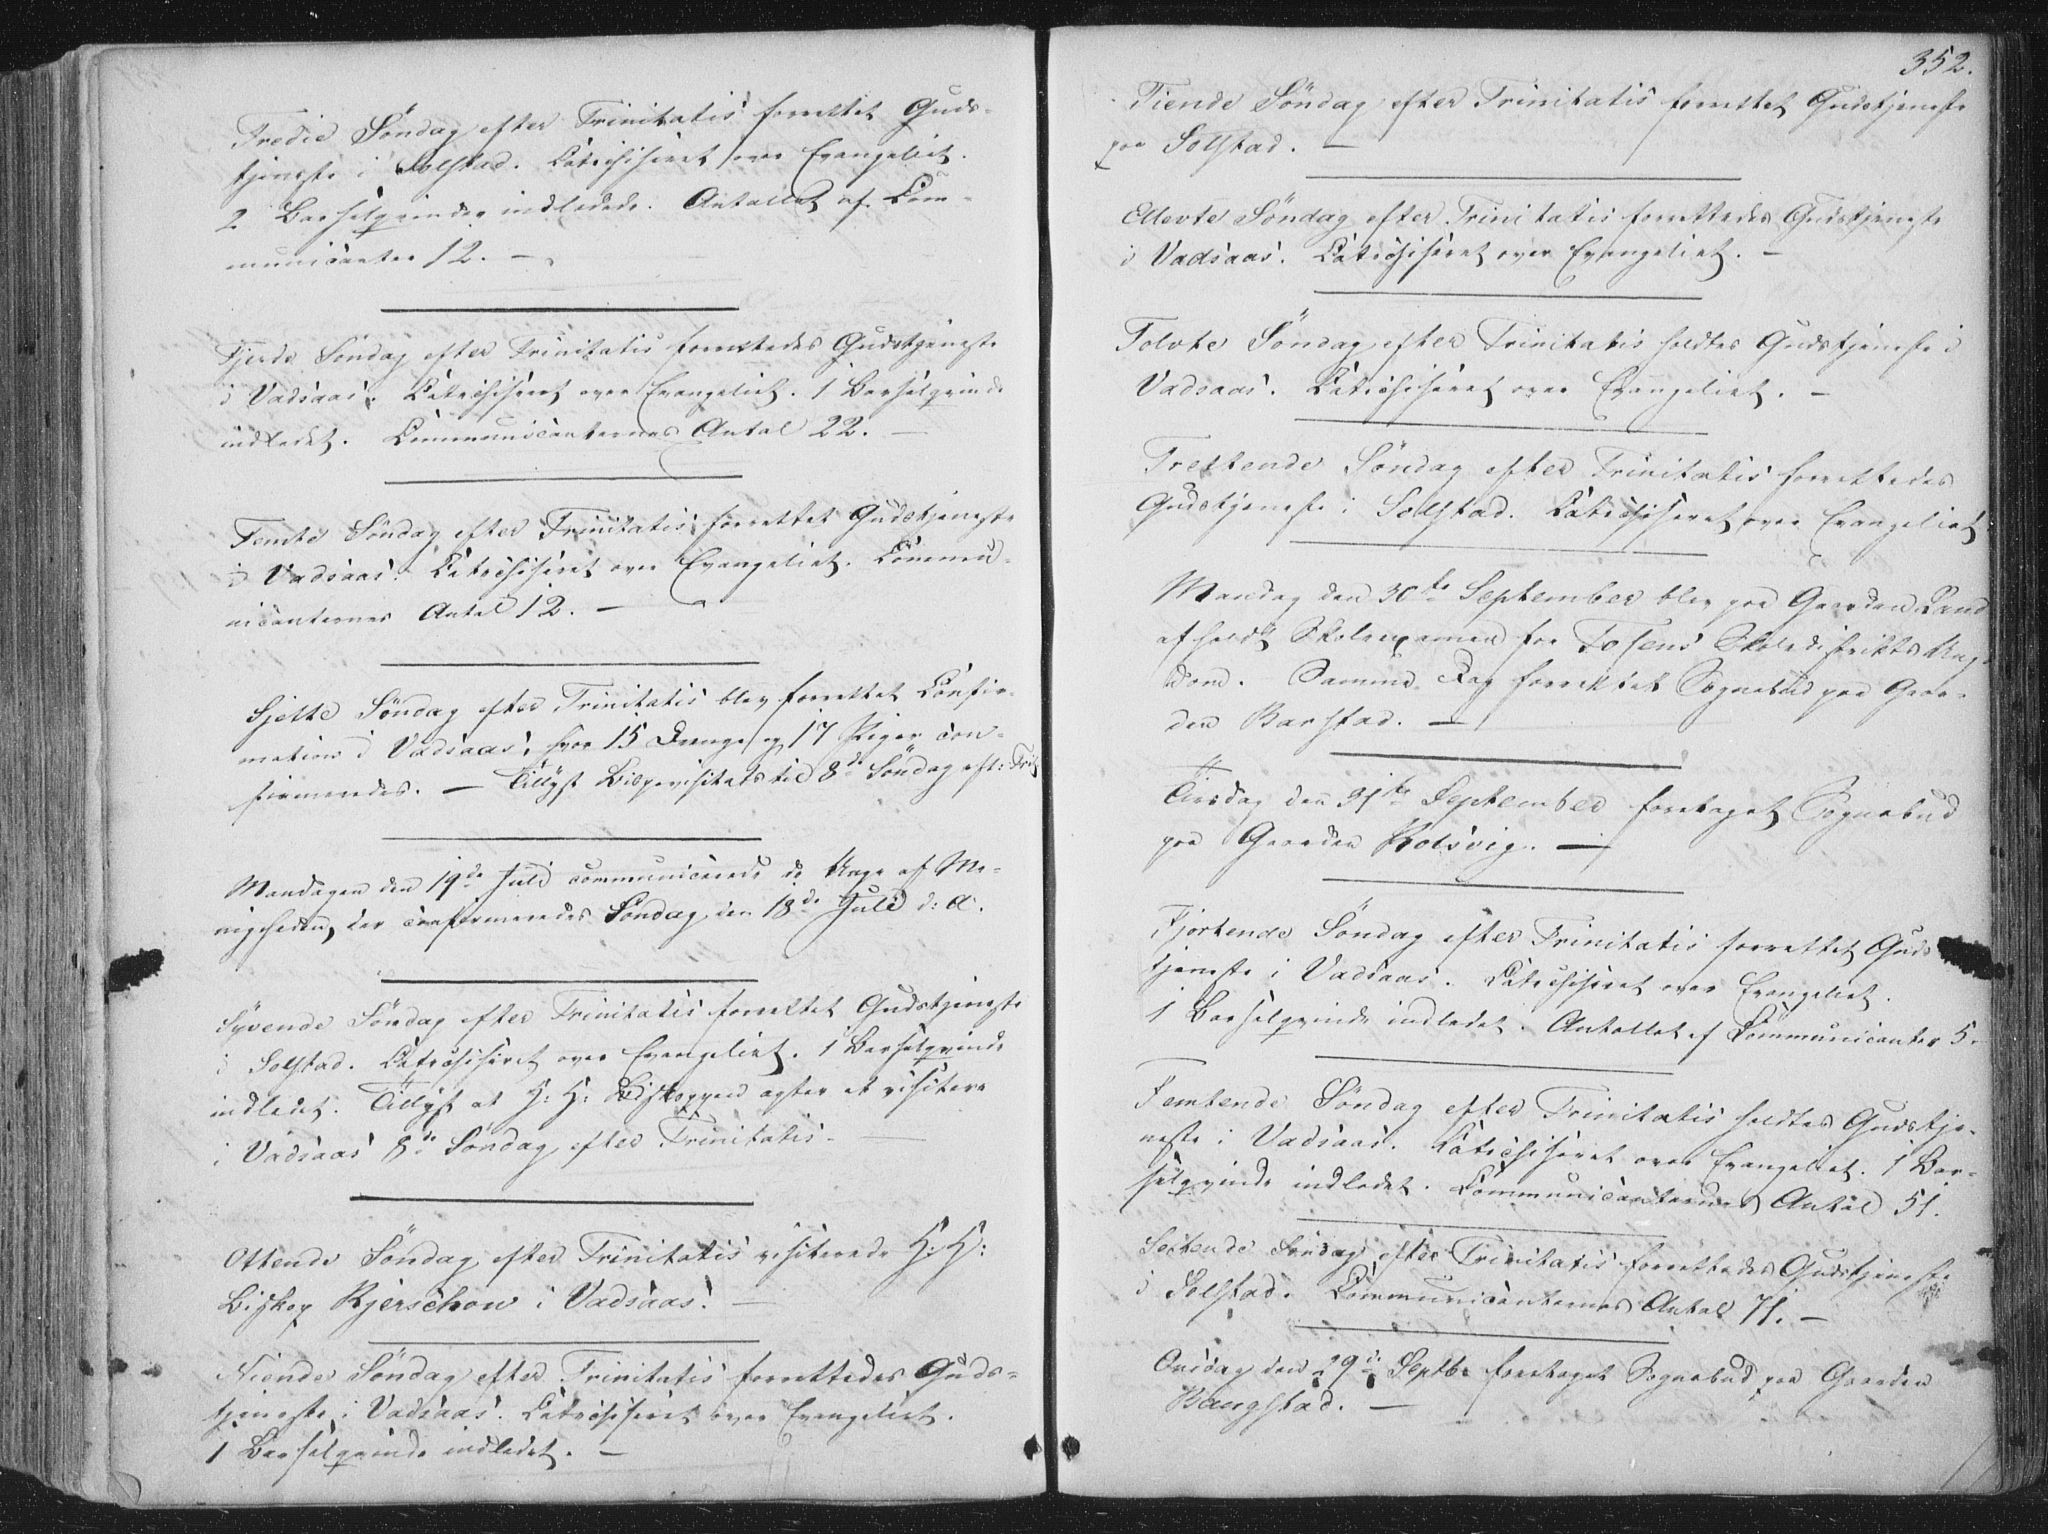 Tredie Söndag efter Trinitatis forrettet Guds-
tjeneste i Solstad. Catechiseret over Evangeliet.
2 Barselqvinder indledede. Antallet af Com-
municanter 12. —
Fjerde Söndag efter Trinitatis forrettedes Gudstjeneste
i Vadsaas. Catechiseret over Evangeliet. 1 Barselqvinde
indledet. Communicanternes Antal 22. —
Femte Söndag efter Trinitatis forrettet Gudstjeneste
i Vadsaas. Catechiseret over Evangeliet. Commu-
nicanternes Antal 12. —
Sjette Söndag efter Trinitatis blev forrettet Confir-
mation i Vadsaas, hvor 15 Drenge og 17 Piger con-
firmeredes. — Tillyst Bispevisitats til 8de Söndag eft: Trit
Mandagen den 19de Juli communicerede de Unge af Me-
nigheden, der confirmeredes Söndag den 18de Juli d: A.
Syvende Söndag efter Trinitatis forrettet Gudstjeneste
i Solstad. Catechiseret over Evangeliet. 1 Barselqvinde
indledet. Tillyst at H: H: Biskoppen agter at visitere
i Vadsaas 8de Söndag efter Trinitatis. —
Ottende Söndag efter Trinitatis visiterede H: H:
Biskop Kjerschow i Vadsaas. —
Niende Söndag efter Trinitatis forrettedes Guds-
tjeneste i Vadsaas. Catechiseret over Evangeliet.
1 Barselqvinde indledet. —
352.
Tiende Söndag efter Trinitatis forrettet Gudstjeneste
paa Solstad. —
Ellevte Söndag efter Trinitatis forrettedes Gudstjeneste
i Vadsaas. Catechiseret over Evangeliet. —
Tolvte Söndag efter Trinitatis holdtes Gudstjeneste i
Vadsaas. Catechiseret over Evangeliet. —
Trettende Söndag efter Trinitatis forrettedes
Gudstjeneste i Solstad. Catechiseret over Evangeliet
Mandag den 30te September blev paa Gaarden Land
afholdt Skoleexamen for Tosens Skoledistrikts Ung-
dom. Samme Dag forrettet Sognebud paa Gaar-
den Barstad. —
Tirsdag den 31te September foretaget Sognebud
paa Gaarden Kolsvig. —
Fjortende Söndag efter Trinitatis forrettet Guds
tjeneste i Vadsaas. Catechiseret over Evangeliet.
1 Barselqvinde indledet. Antallet af Communicanter 5.
Femtende Söndag efter Trinitatis holdtes Gudstje-
neste i Vadsaas. Catechiseret over Evangeliet. 1 Bar-
selqvinde indledet. Communicanternes Antal 51.
Sextende Söndag efter Trinitatis forrettedes Gudstjeneste
i Solstad. Communicanternes Antal 71. —
Onsdag den 29de Septbr foretaget Sognebud paa Gaarden
Bangstad. —